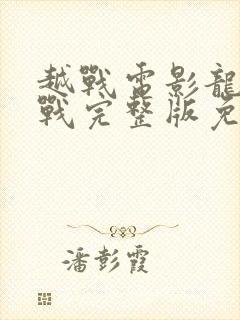 越戰電影龍
戰完整版免
潘彭霞